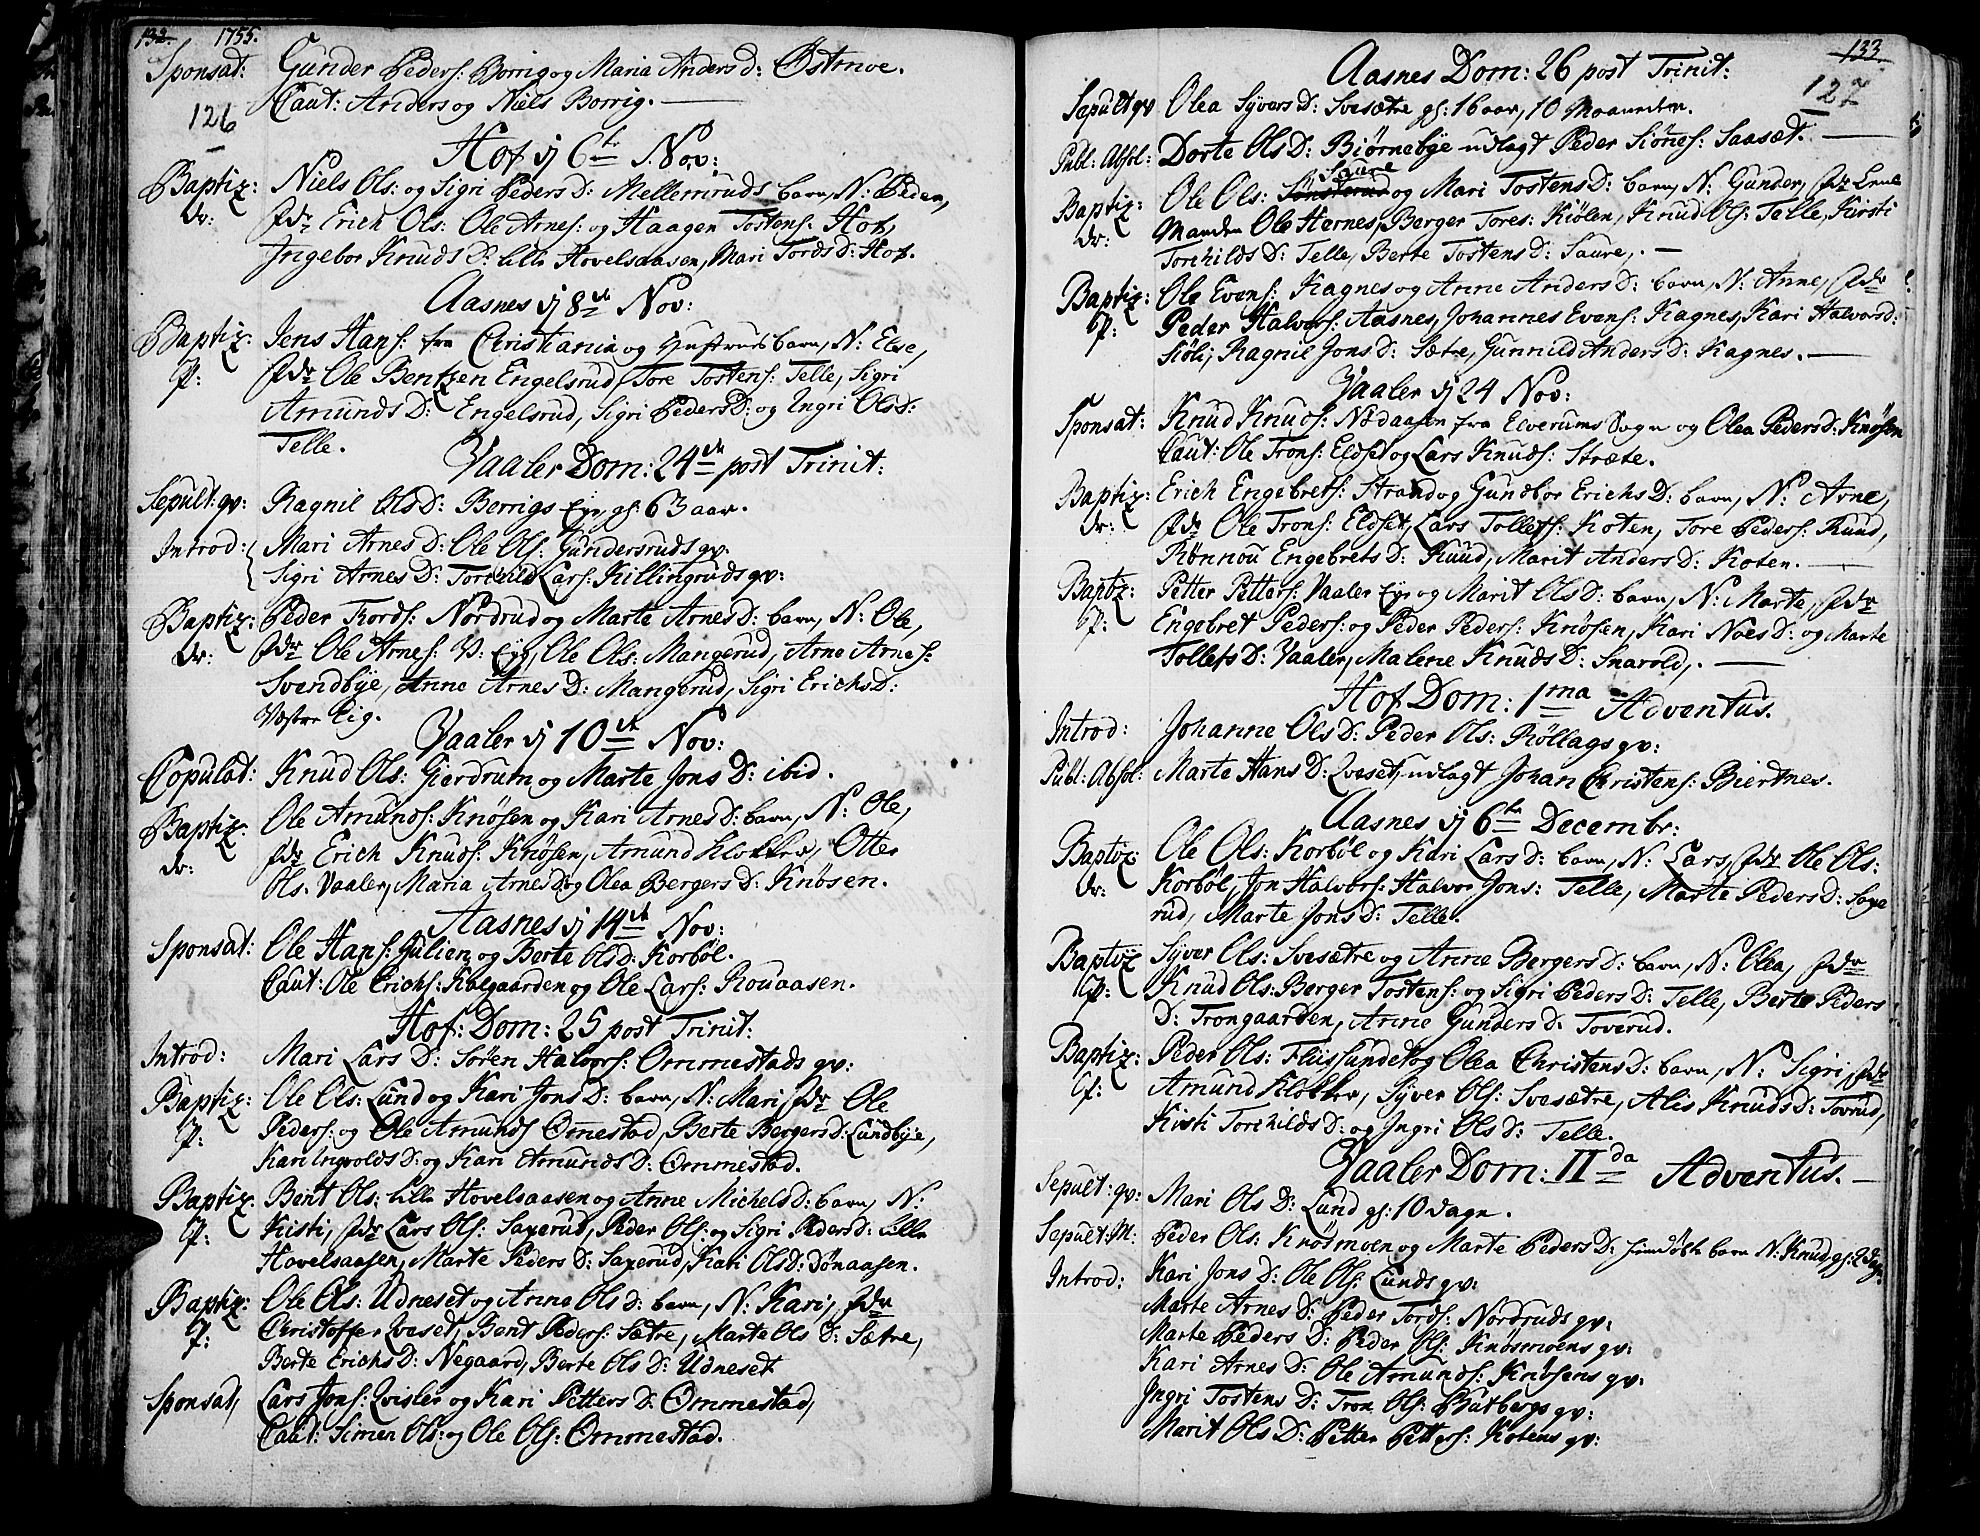 132. 1755.
Sponsat: Gunder Peders: Borrig og Maria Anders d: Østmoe.
126 Caut: Anders og Niels Borrig.
Hof ij 6te Nov:
Baptiz: Niels Ols: og Sigri Peders D: Mellemruds barn, N: Peder,
dr: fdr Erich Ols: Ole Arnes: og Haagen Tostens: Hof,
Ingebor Knuds D: Lille Hovelsaasen, Mari Tords D: Hof.
Aasnes ij 8de Nov:
Baptiz: Jens Hans: fra Christania og Hustrues barn, N: Else,
p: fdr Ole Bentzen Engelsrud, Tore Tostens: Telle, Sigri
Amunds D: Engelsrud, Sigri Peders D: og Ingri Olsd:
Telle.
Vaaler Dom: 24de post Trinit:
Sepult: qv: Ragnil Olsd: Berrigs Eye gl: 63 aar.
Introd: Mari Arnes D: Ole Ols: Gundersruds qv:
Sigri Arnes D: Torchild Lars: Killingruds qv:
Baptiz: Peder Tords: Nordrud og Marte Arnes d: barn, N: Ole,
dr: fdr Ole Arnes: V: Eye, Ole Ols: Mangerud, Arne Arnes:
Svendbye, Anne Arnes D: Mangerud, Sigri Erichs D:
Væster Eig.
Vaaler ij 10de Nov:
Copulat: Knud Ols: Gierdrum og Marte Jons D: ibid.
Baptiz: Ole Amunds: Knøsen og Kari Arnes d: barn, N: Ole,
dr: fdr Erich Knuds: Knøsen, Amund Klokker, Otter
Ols: Vaaler, Maria Arnes D: og Olea Bergers D: Knøsen.
Aasnes ij 14de Nov:
Sponsat: Ole Hans: Gulien og Berte Olsd: Korbøl.
Caut: Ole Erichs: Kalgaarden og Ole Lars: Rouaasen.
Hof: Dom: 25 post Trinit:
Introd: Mari Lars D: Søren Halvors: Ommestads qv:
Baptiz: Ole Ols: Lund og Kari Jons D: barn, N: Mari, fdr Ole
p: Peders: og Ole Amunds Ommestad, Berte Bergers D: Lundbye,
Kari Ingvolds D: og Kari Amunds D: Ommestad.
Baptiz: Bent Ols: Lille Hovelsaasen og Anne Michels D: barn, N:
p: Kisti, fdr Lars Ols: Saxerud, Peder Ols: og Sigri Peders d: Lille
Hovelsaasen, Marte Peders D: Saxerud, Kari Olsd: Dønaasen.
Baptiz: Ole Ols: Udneset og Anne Ols D: barn, N: Kari, fdr
p: Christoffer Qveset, Bent Peders: Sætre, Marte Ols D: Sætre,
Berte Erichs D: Negaard, Berte Ols D: Udneset
Sponsat, Lars Jons: Qvisler og Kari Petters D: Ommestad,
Caut: Simen Ols: og Ole Ols: Ommestad.
133.
127
Aasnes Dom: 26 post Trinit:
Sepult qv Olea Syvers D: Svesætre gl: 16 aar, 10 Maaneder.
Publ: Absol: Dorte Ols D: Biørnebye udlagt Peder Simens: Saaset.
Saure
Baptiz: Ole Ols: Sønsterud og Mari Tostens D: barn, N: Gunder, fdr
dr: Manden Ole Hernes, Berger Tores: Kiølen, Knud Ols: Telle, Kirsti
Torchilds D: Telle, Berte Tostens D: Saure,
Baptiz: Ole Evens: Kagnes og Anne Anders D: barn, N: Anne, fdr
p: Peder Halvors: Aasnes, Johannes Evens: Kagnes, Kari Halvorsd:
Kiøli, Ragnil Jons D: Sætre, Gunnild Anders D: Kagnes.
Vaaler ij 24 Nov:
Sponsat: Knud Knuds: Nødaasen fra Elverums Sogn og Olea Peders d: Knøsen
Caut: Ole Trons: Eldset og Lars Knuds: Stræte.
Baptiz: Erich Engebrets: Strand og Gundbor Erichs D: barn, N: Arne,
dr: fdr Ole Trons: Eldset, Lars Tollefs: Koten, Tore Peders: Ruud,
Rønnou Engebrets D: Ruud, Marit Anders D: Koten.
Baptz: Petter Petters: Vaaler Eye og Marit Ols D: barn, N: Marte, fdr
p: Engebret Peders: og Peder Peders: Knøsen, Kari Noes D: og Marte
Tollefs D: Vaaler, Malene Knuds D: Snarold,
Hof Dom: 1ma Adventus.
Introd: Johanne Ols D: Peder Ols: Røllags qv:
Publ: Absol: Marte Hans D: Qveset, udlagt Johan Christens: Biertnes.
Aasnes ij 6te Decembr:
Baptiz: Ole Ols: Korbøl og Kari Lars D: barn, N: Lars, fdr Ole Ols:
dr: Korbøl, Jon Halvors: Halvor Jons: Telle, Marte Peders D: Soge
rud, Marte Jons D: Telle.
Baptiz Syver Ols: Svesætre og Anne Bergers D: barn, N: Olea, fdr
p: Knud Ols: Berger Tostens: og Sigri Peders D: Telle, Berte Peders
D: Trongaarden, Anne Gunders D: Toverud.
Baptiz: Peder Ols: Flissundet og Olea Christens D: barn, N: Sigri, fdr
p: Amund Klokker, Syver Ols: Svesætre, Alis Knuds D: Tovrud,
Kisti Torchilds D: og Ingri Ols D: Telle.
Vaaler Dom: IIda Adventus.
Sepult: qv: Mari Ols D: Lund gl: 10 dage.
Sepult: M: Peder Ols: Knøsmoen og Marte Peders D: hiemdøbt barn N: Knud gl: 2 dage
Introd: Kari Jons D: Ole Ols: Lunds qv:
Marte Arnes D: Peder Tords: Nordruds qv:
Marte Peders D: Peder Ols: Knøsmoens qv:
Kari Arnes D: Ole Amunds: Knøsens qv:
Ingri Tostens D: Tron Ols: Butbergs qv:
Marit Ols D: Petter Petters: Kotens qv: